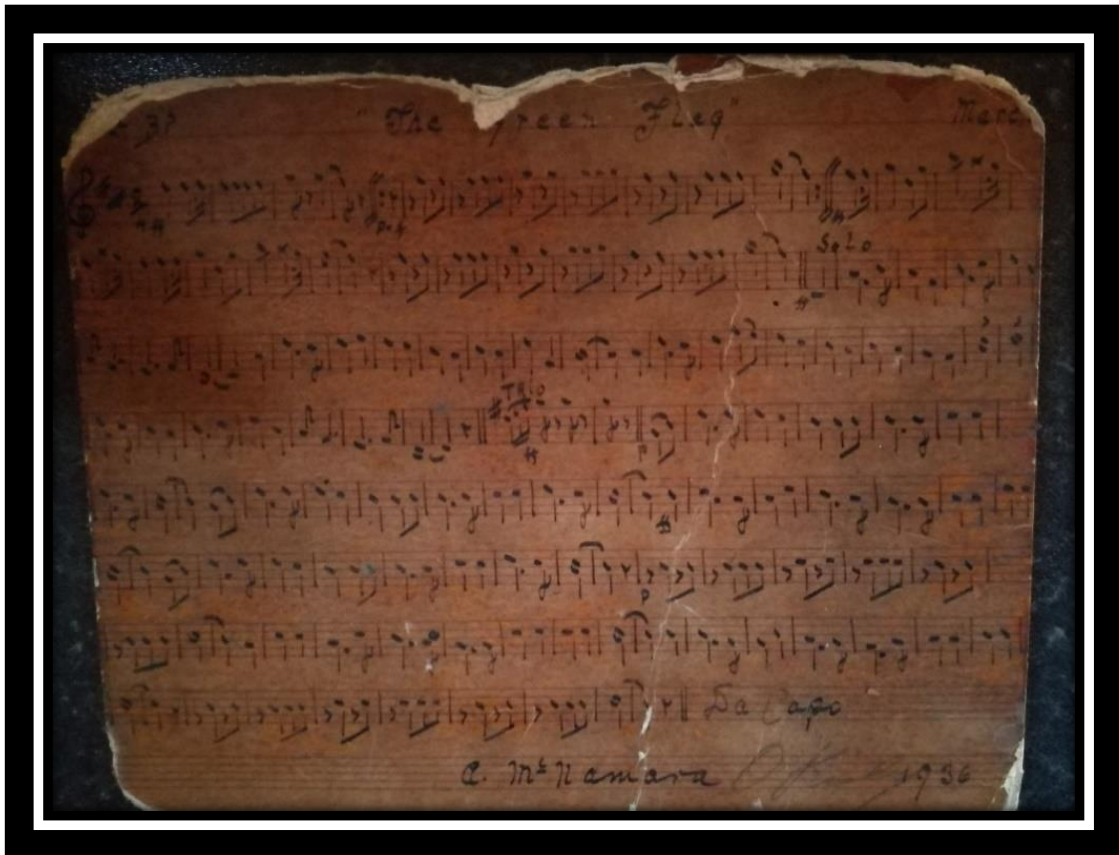 "The Green Flag" Marc
Solo
Trio
Da Capo
C. McNamara 1936